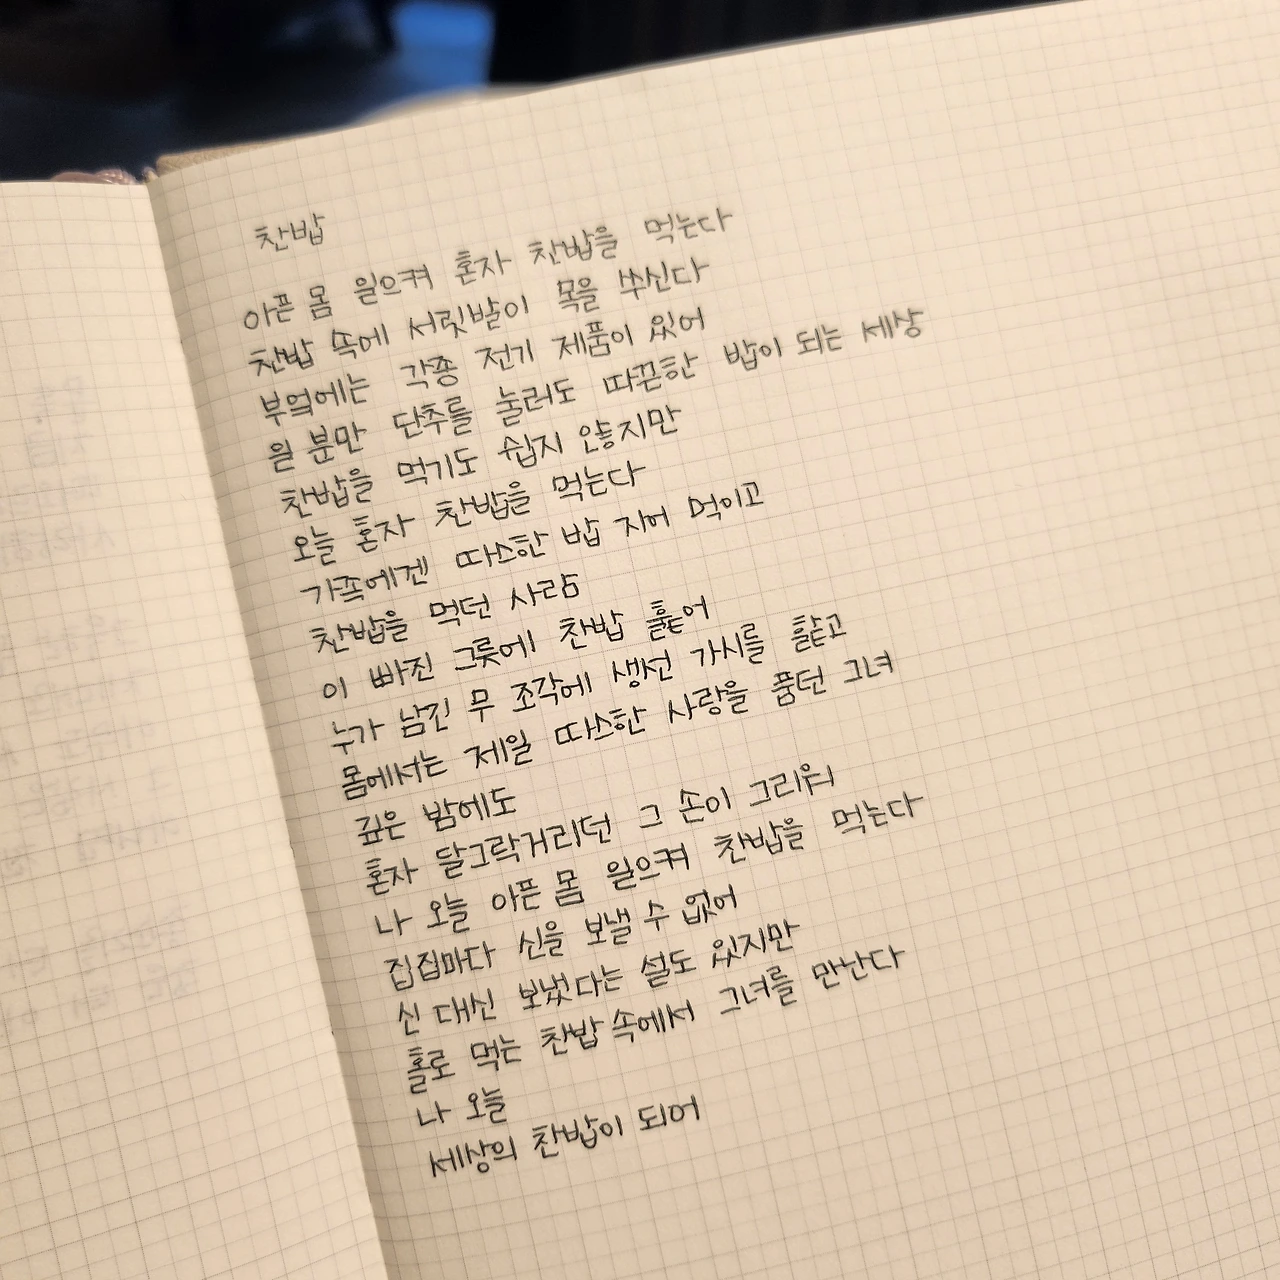 찬밥
아픈 몸 일으켜 혼자 찬밥을 먹는다
찬밥 속에 서릿발이 목을 쑤신다
부엌에는 각종 전기 제품이 있어
일 분만 단추를 눌러도 따끈한 밥이 되는 세상
찬밥을 먹기도 쉽지 않지만
오늘 혼자 찬밥을 먹는다
가족에겐 따스한 밥 지어 먹이고
찬밥을 먹던 사람
이 빠진 그릇에 찬밥 훑어
누가 남긴 무 조각에 생선 가시를 핥고
몸에서는 제일 따스한 사랑을 품던 그녀
깊은 밤에도
혼자 달그락거리던 그 손이 그리워
나 오늘 아픈 몸 일으켜 찬밥을 먹는다
집집마다 신을 보낼 수 없어
신 대신 보냈다는 설도 있지만
홀로 먹는 찬밥 속에서 그녀를 만난다
나 오늘
세상의 찬밥이 되어